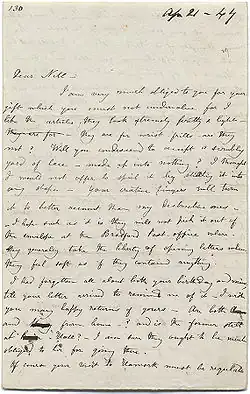 130
Apr 21 - 47
Dear Nell -
I am very much obliged to you for your
gift which you must not undervalue for I
like the articles, they look extremely pretty & light -
They are for wrist frills are they
not? Will you condescend to accept a yard
of lace - made up into nothing? I thought
I would not offer to spoil it by stitching it into
any shape - Your creative fingers will turn
it to better account than my destructive ones -
I hope such as it is they will not pick it out of
the envelope at the Bradford Post-office where
they generally take the liberty of opening letters when
they feel soft as if they contained anything
I had forgotten all about both your birthday and mine
till your letter arrived to remind me of it - I wish
you many happy returns of yours - Are both
and from home? and is the former still
at Hall? I am sure they ought to be much
obliged to her for going there -
Of course your visit to Haworth must be regulated